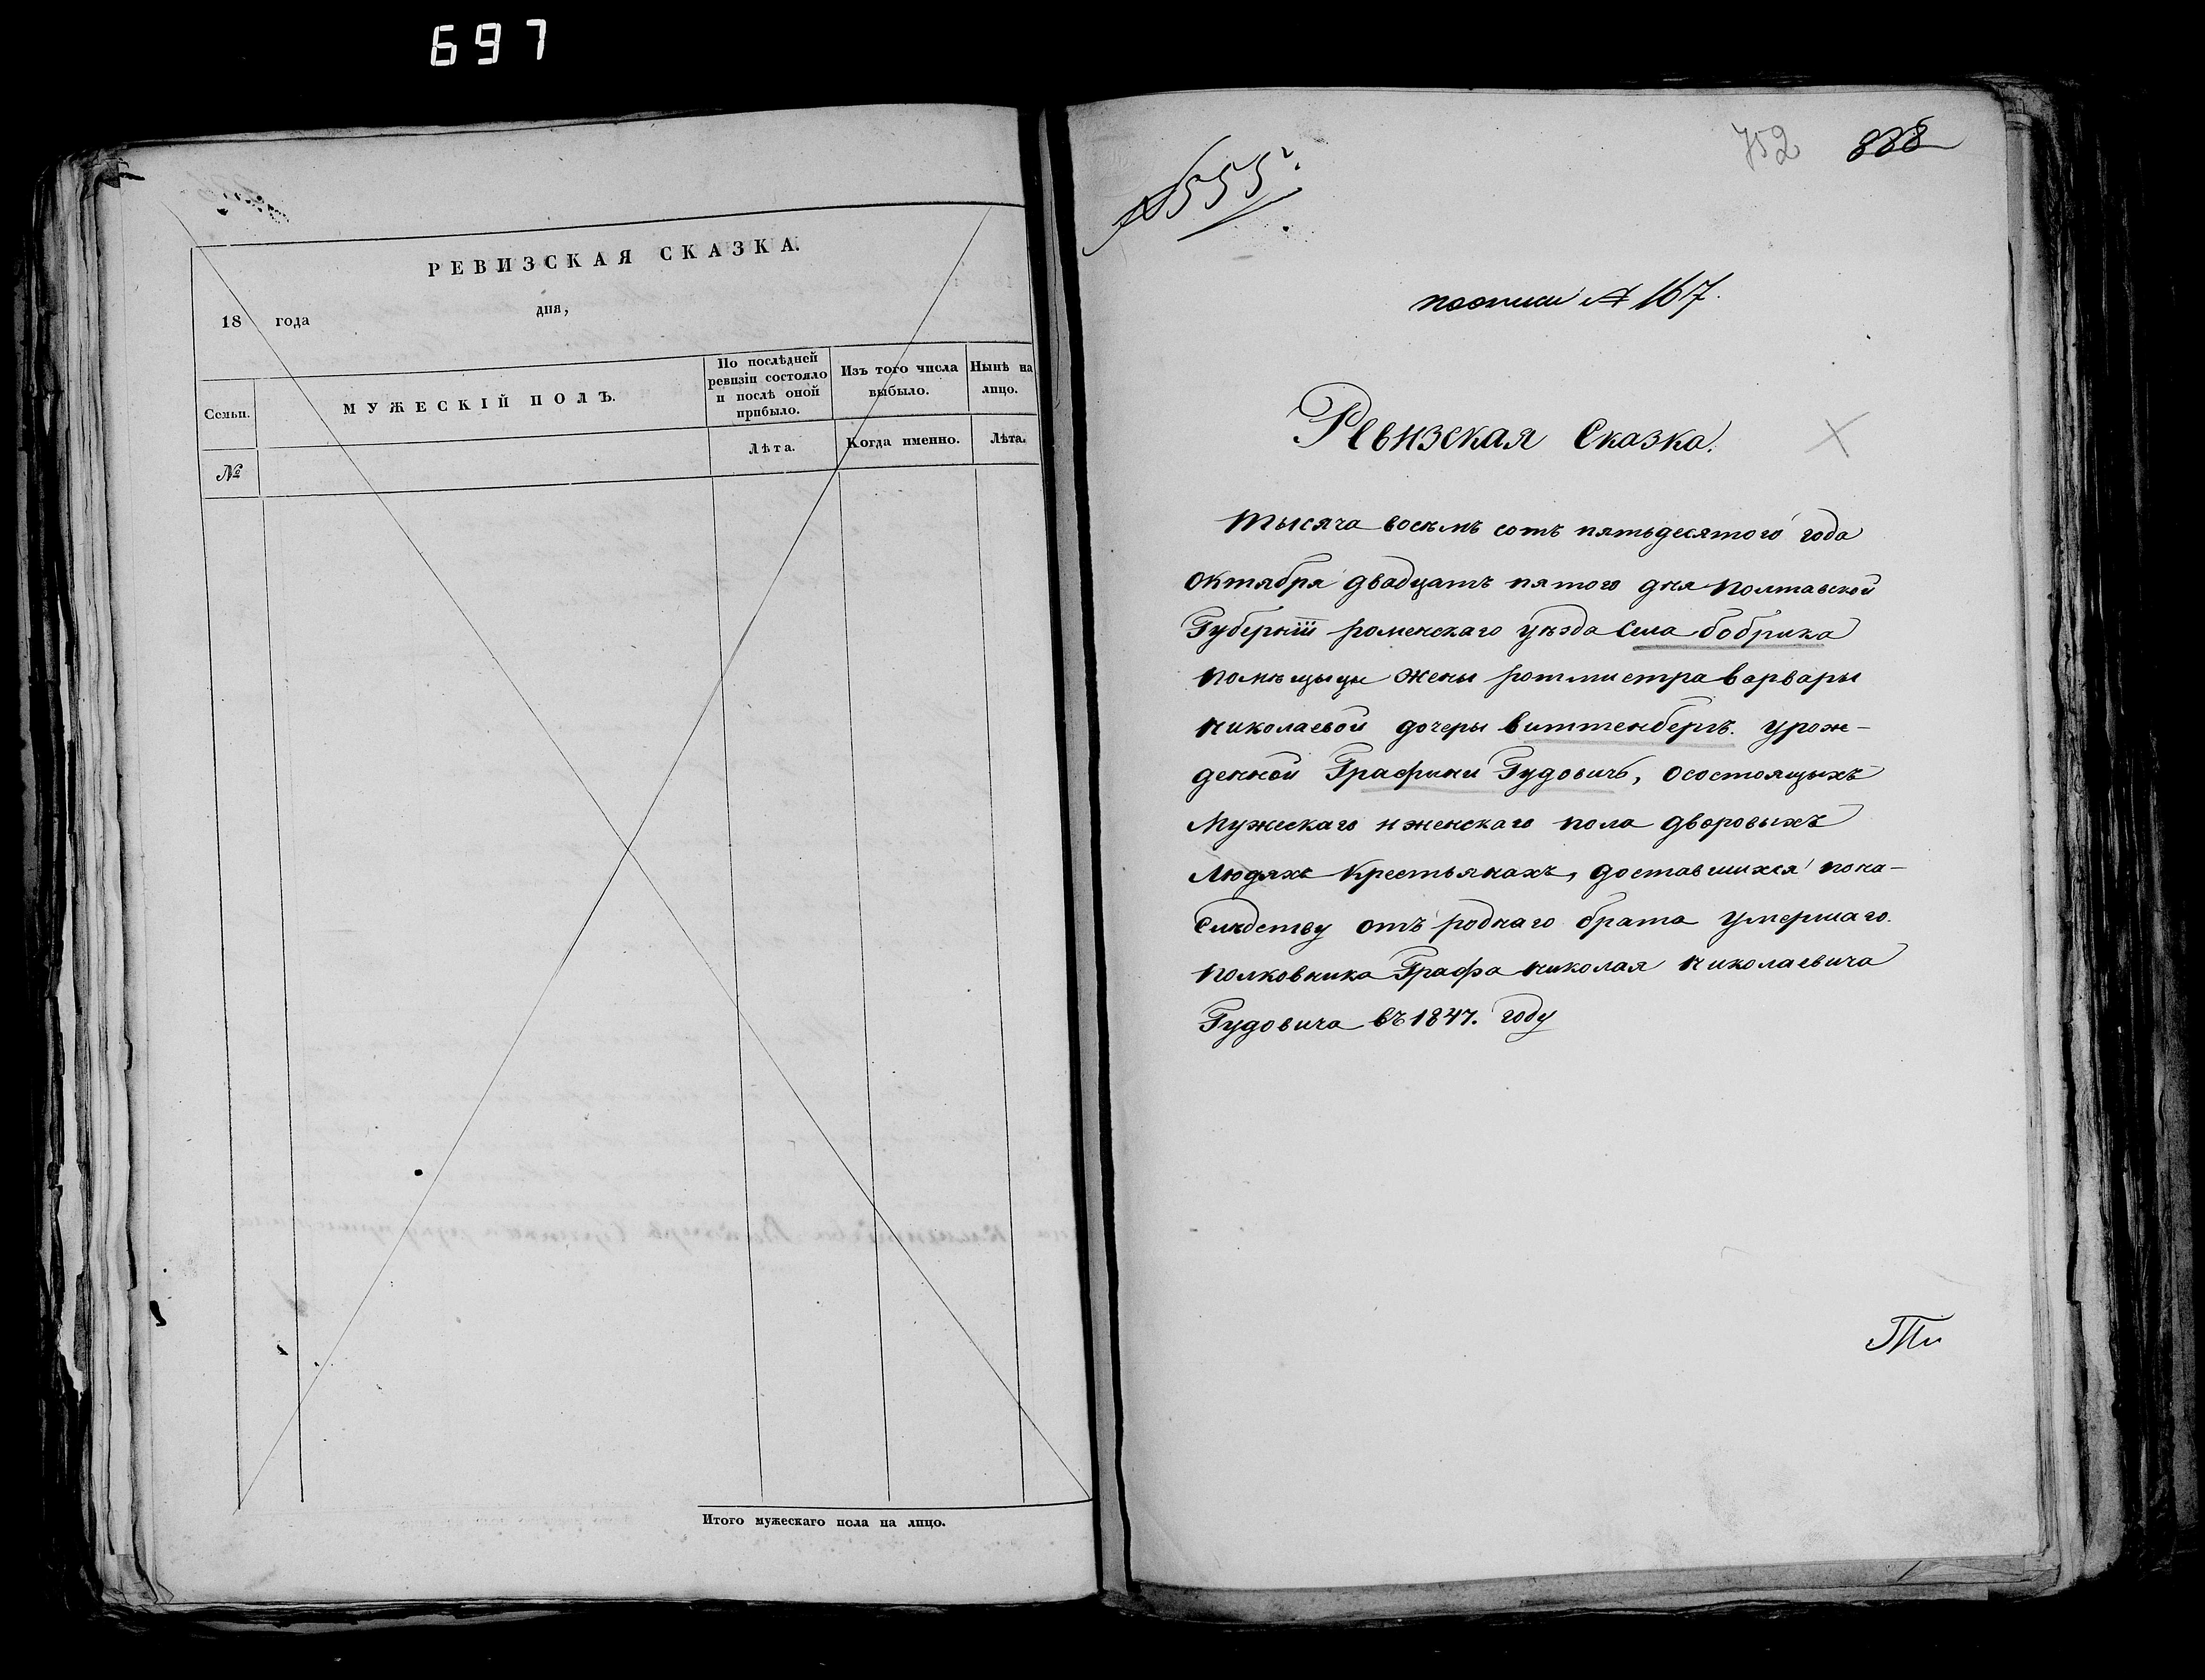 697
РЕВИЗСКАЯ СКАЗКА.
18 года дня,
Семьи.
МУЖЕСКІЙ ПОЛЪ.
По послѣдней
ревизіи состояло
и послѣ оной
прибыло.
Изъ того числа
выбыло.
Нынѣ на
лицо.
№
Лѣта.
Когда именно.
Лѣта.
Итого мужескаго пола на лицо.
752 888
№ 555.
пописи № 167.
Ревизская Сказка.
Тысяча восемь сотъ пятьдесятого года
Октября двадцать пятого дня Полтавской
Губерніи роменскаго уѣзда Села бобрика
Помѣщыцы жены ротмистра варвары
Николаевой дочеры виттенбергъ. урож-
денной Графини Гудовичъ, осостоящыхъ
Мужескаго и женскаго пола дворовыхъ
Людяхъ Крестьянахъ, доставшихся пона-
Слѣдству отъ роднаго брата умершаго
Полковника Графа николая николаевича
Гудовича въ 1847. году